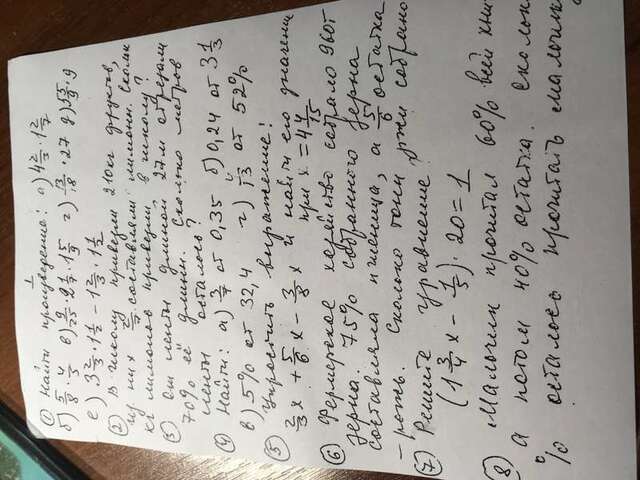 1
① Найти произведение: а) 4 2/3 · 1 2/7
б) 5/8 · 4/5 в) 9/25 · 2 1/7 · 1 5/9 г) 13/18 · 27 д) 5 5/9 · 9
е) 3 2/3 · 1 1/2 − 1 2/3 · 1 1/2
② В школу привезли 210кг фруктов,
из них 2/7 составляли лимоны. Сколь
кг лимонов привезли в школу?
③ От ленты длиной 27м отрезали
70% её длины. Сколько метров
ленты осталось?
④ Найти: а) 3/7 от 0,35 б) 0,24 от 3 1/3
в) 5% от 32,4 г) /13 от 52%
⑤ Упростить выражение!
2/3 x + 5/6 x − 3/8 x и найти его значение
при x = 4 4/15
⑥ Фермерское хозяйство собрало 960т
зерна. 75% собранного зерна
составляла пшеница, а 5/6 остатка
– рожь. Сколько тонн ржи собрано
⑦ Решите уравнение
(1 3/4 x − 1/5) · 20 = 1
⑧ Мальчик прочитал 60% всей кни
а потом 40% остатка. Сколь
% осталось прочитать мальчику